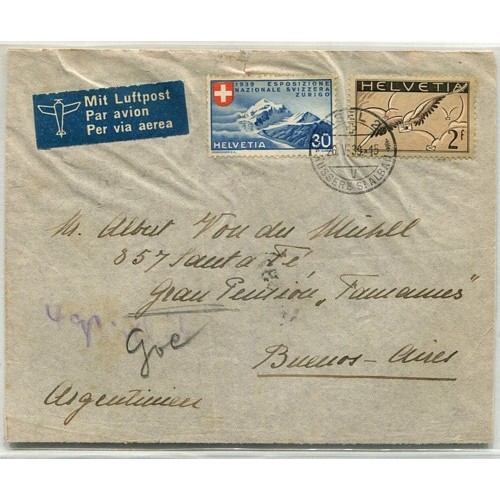 Mit Luftpost
Par avion
Per via aerea
1939 ESPOSIZIONE
NAZIONALE SVIZZERA
ZURIGO
HELVETIA 30
HELVETIA
2 F
39-15
ÄUSSERE ST. ALBAN
M. Albert Von du Mühll
857 Santa Fé
Gran Pension „Tamames"
Goe
Buenos-Aires
Argentinien